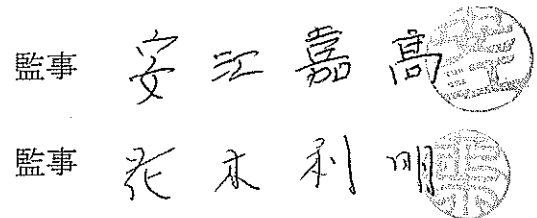 監事 安江嘉高
監事 花木利明